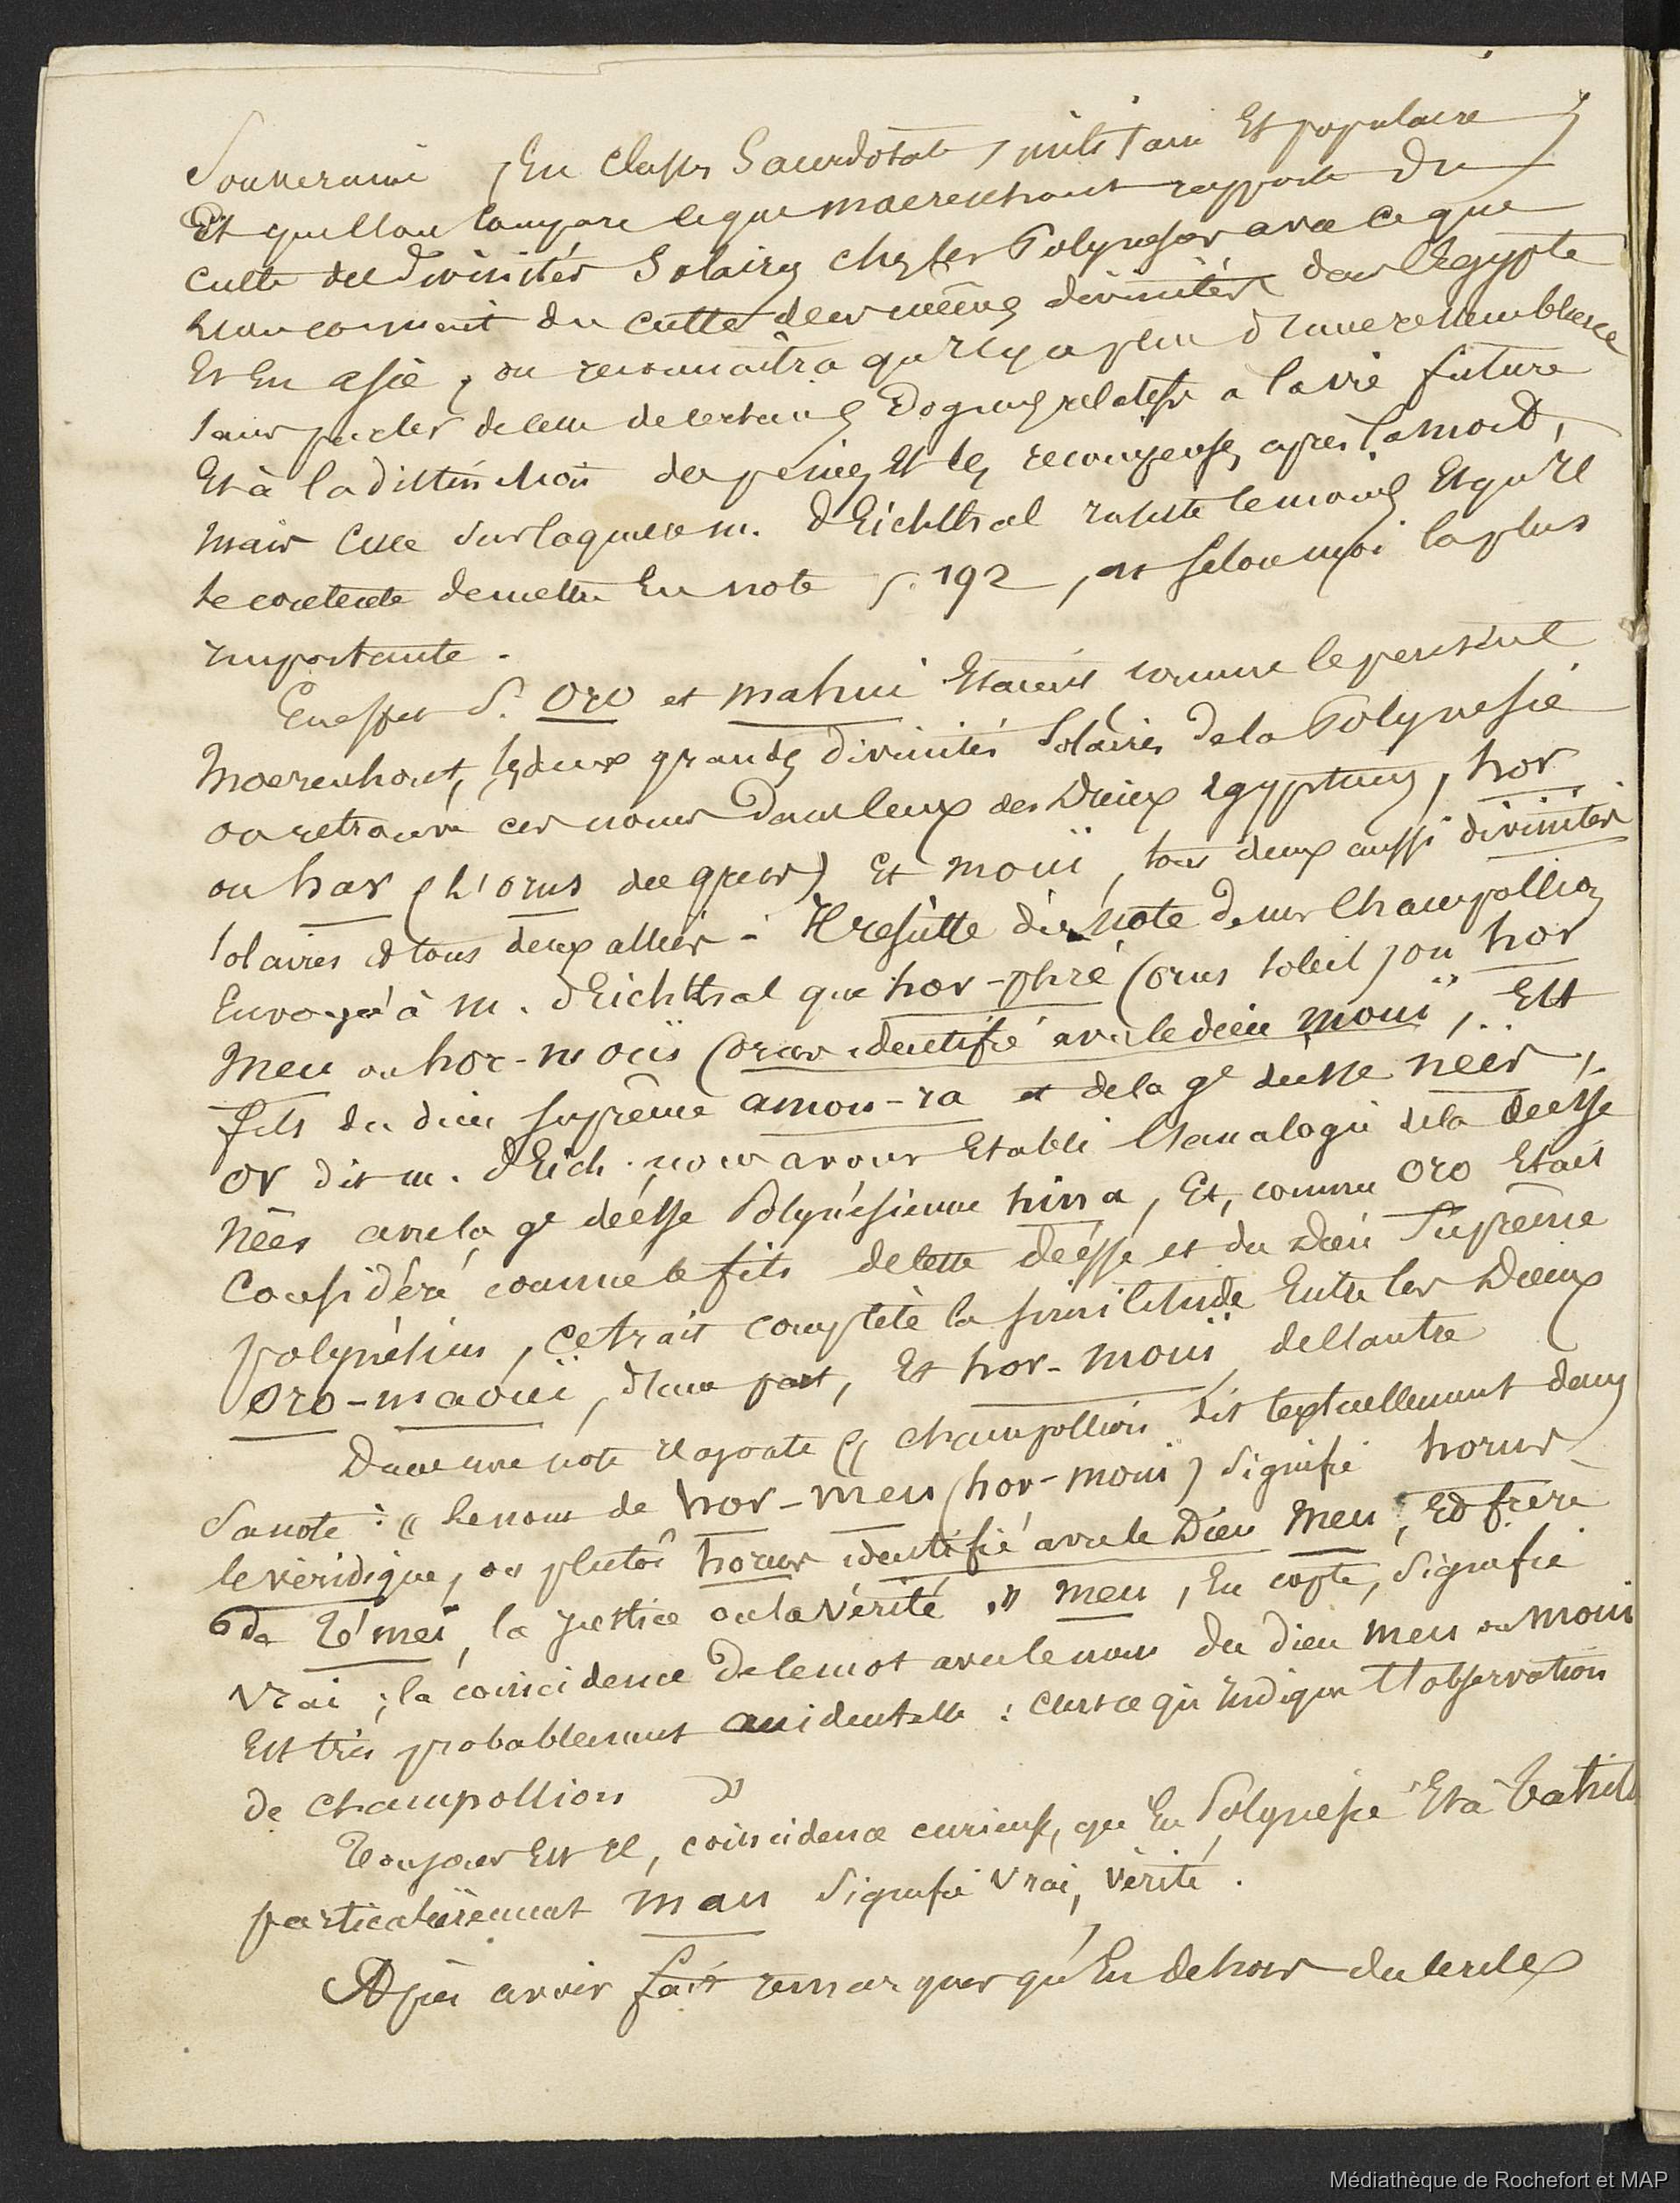 Souveraine, en classes Sacerdotale, militaire Et populaire ;
Et que l'on compare ce que moerenhout rapporte du
culte des Divinités Solaires chez les Polynesiens avec ce que
l'on connait du culte des mêmes divinités dans l'Egypte
Et En asie, on reconnaîtra qu'il y a plus d'une ressemblance
sans parler de celle de certains Dogmes relatifs a la vie future
Et à la distinction des peines Et les recompenses après la mort,
mais celle sur laquelle m. d'Eichthal insiste le moins Et qu'il
se contente de mettre En note p. 192, est selon moi la plus
importante.
En effet S. Oro et mahui Etaient comme le pense
Moerenhout, les deux grandes divinités Solaires de la Polynesie
on retrouve ces noms dans ceux des Dieux Egyptiens, hor
ou har (L'orus des grecs) Et mouï, tous deux aussi divinités
solaires et tous deux alliés - Il resulte d'une note de mr Champollion
Envoyée à m. d'Eichthal que hor-phré (orus soleil) ou hor
meu ou hor-mouï (orus identifié avec le dieu mouï, .. Est
fils du dieu suprême amon-ra et de la gde déesse neés ..
or dit m. d'Eich. nous avons Etabli l'analogie de la déesse
Nëés avec la gde déesse Polynésienne hina, Et, comme oro Etait
Considéré comme le fils de cette déésse et du Dieu Suprême
polynésien, ce trait complète la similitude Entre les Dieux
oro-maouï, d'une part, Et hor-mouï de l'autre
Dans une note il ajoute « champollion dit textuellement dans
Sa note : « Le nom de hor-meu (hor-mouï) signifie horus
le véridique, ou plutôt horus identifié avec le Dieu Meu, Et frère
de té'meï, la justice ou la vérité. » meu, En copte, signifie
vrai ; la coincidence de ce mot avec le nom du dieu meu ou mouï
Est très probablement accidentelle : c'est ce qu'indique l'observation
de champollion »
Toujours Est il, coincidence curieuse, qu'En Polynesie Et à Tahiti
particulièrement mau signifie vrai, vérité.
Après avoir fait remarquer qu'En dehors du cercle
Médiathèque de Rochefort et MAP